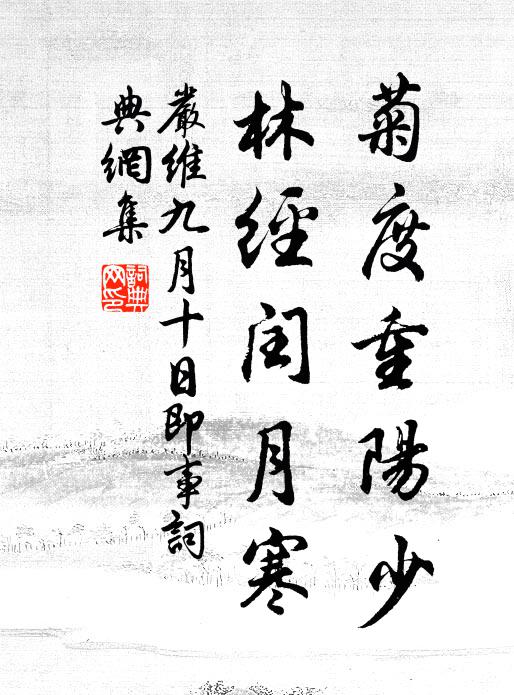 菊度重陽少
林經閏月寒
嚴維九月十日即事詞
典網集
詞典網印